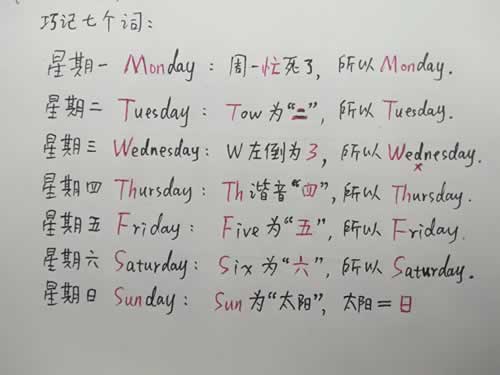 巧记七个词:
星期一 Monday: 周一忙死了, 所以 Monday.
星期二 Tuesday: Tow为“二”, 所以 Tuesday.
星期三 Wednesday: W左倒为3, 所以 Wednesday.
×
星期四 Thursday: Th谐音“四”, 所以 Thursday.
星期五 Friday: Five为“五”, 所以 Friday.
星期六 Saturday: Six为“六”, 所以 Saturday.
星期日 Sunday: Sun为“太阳”, 太阳=日